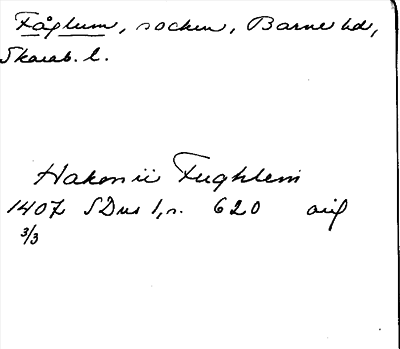 Fåglum, socken, Barne hd,
Skarab. l.
Hakon ii Fughlem
1407 SDns 1, s. 620 orig
3/3